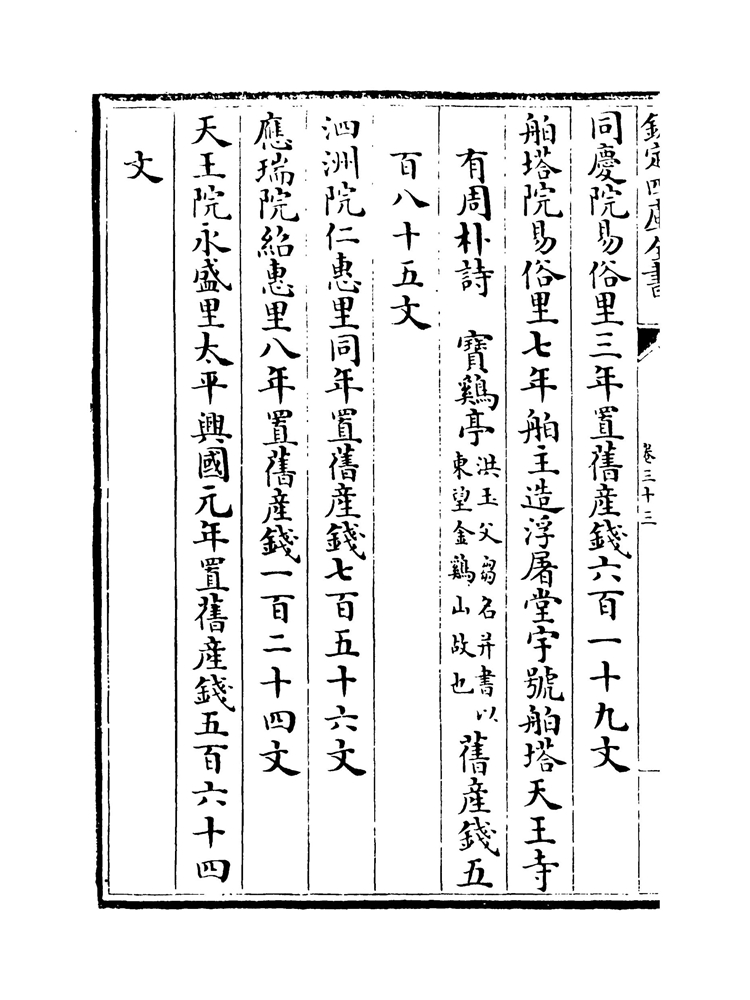 欽定四庫全書
卷三十三
同慶院易俗里三年置舊產錢六百一十九文
舶塔院易俗里七年舶主造浮屠堂宇號舶塔天王寺
有周朴詩　寶鷄亭洪玉父芻名并書以東望金鷄山故也舊產錢五
百八十五文
泗洲院仁惠里同年置舊產錢七百五十六文
應瑞院紹惠里八年置舊產錢一百二十四文
天王院永盛里太平興國元年置舊產錢五百六十四
文